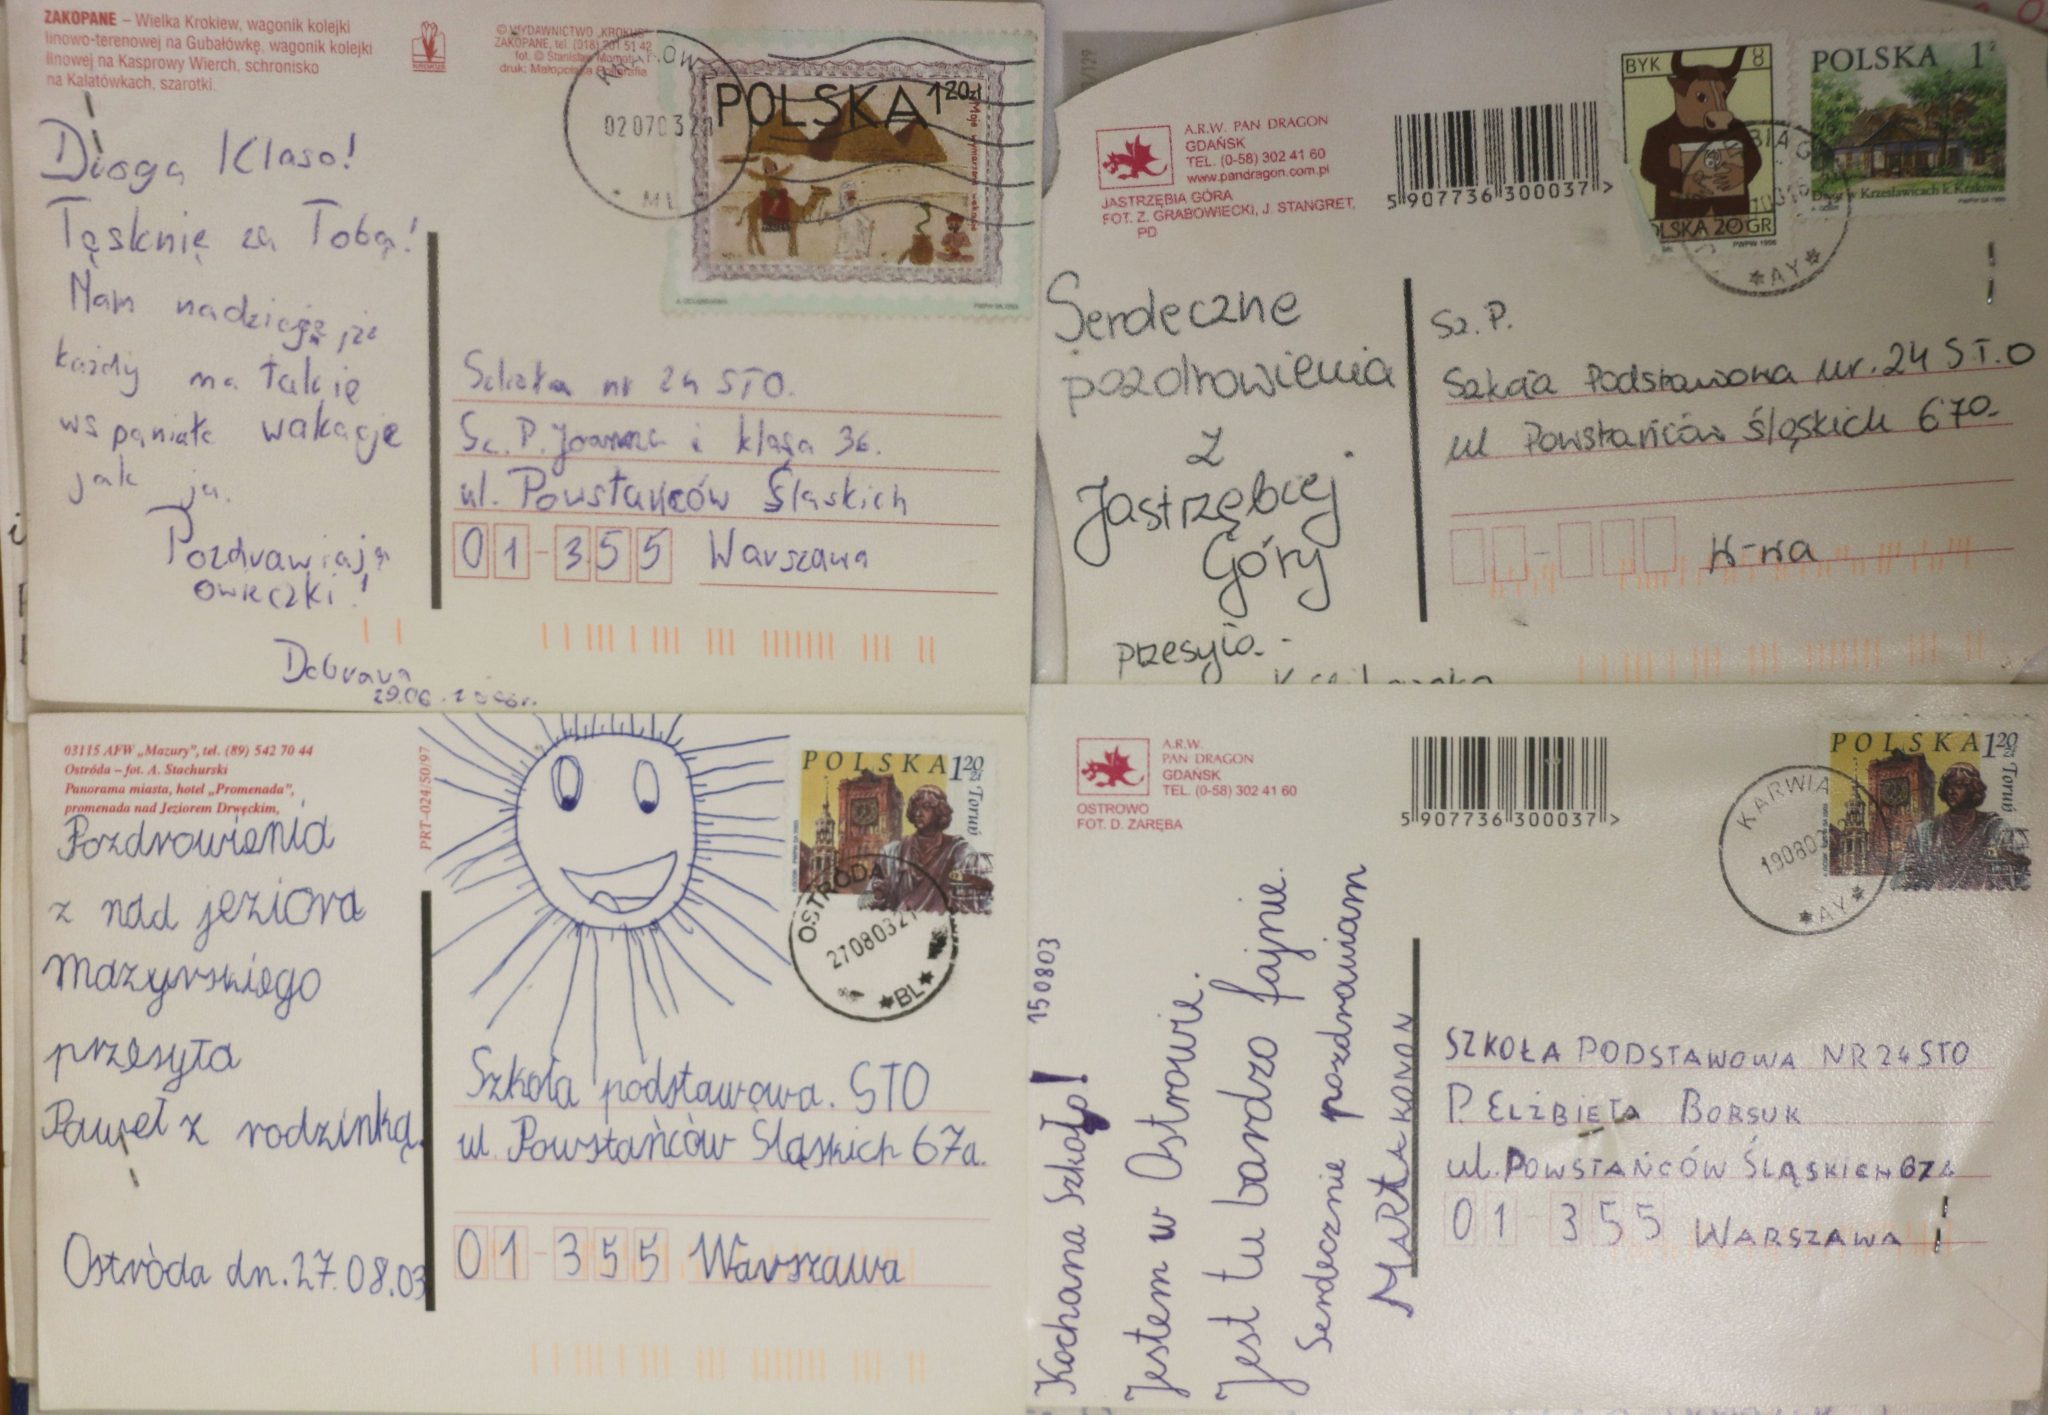 ZAKOPANE – Wielka Krokiew, wagonik kolejki
linowo-terenowej na Gubałówkę, wagonik kolejki
linowej na Kasprowy Wierch, schronisko
na Kalatówkach, szarotki.
KROKUS
© WYDAWNICTWO „KROKUS”
ZAKOPANE, tel. (018) 201 51 42
fot. © Stanisław Momot
druk: Małopolska Poligrafia
020703
POLSKA 1 20 zł
Moje wymarzone wakacje
Droga Klaso!
Tęsknię za Tobą!
Mam nadzieję, że
każdy ma takie
wspaniałe wakacje
jak ja.
Pozdrawiają
owieczki!
Dobrawa
29.06.
Szkoła nr 24 STO.
Sz. P. Joanna i klasa 3b.
ul. Powstańców Śląskich
01-355 Warszawa
A.R.W. PAN DRAGON
GDAŃSK
TEL. (0-58) 302 41 60
www.pandragon.com.pl
JASTRZĘBIA GÓRA
FOT. Z. GRABOWIECKI, J. STANGRET,
PD
5 907736 300037 >
BYK 8
POLSKA 20 GR
PWPW 1996
POLSKA 1
Dwór w Krzesławicach k. Krakowa
*AY*
Serdeczne
pozdrowienia
z
Jastrzębiej
Góry
przesyła -
Sz. P.
Szkoła Podstawowa nr. 24 S T.O
ul Powstańców Śląskich 67a
W-wa
03115 AFW „Mazury”, tel. (89) 542 70 44
Ostróda – fot. A. Stachurski
Panorama miasta, hotel „Promenada”,
promenada nad Jeziorem Drwęckim,
PRT-024/50/97
POLSKA 1 20 zł
Toruń
OSTRÓDA
27080321
*BL*
Pozdrowienia
z nad jeziora
Mazurskiego
przesyła
Paweł z rodzinką.
Ostróda dn. 27.08.03
Szkoła podstawowa. STO
ul. Powstańców Śląskich 67a.
01-355 Warszawa
A.R.W.
PAN DRAGON
GDAŃSK
TEL. (0-58) 302 41 60
OSTROWO
FOT. D. ZARĘBA
5 907736 300037 >
POLSKA 1 20 zł
Toruń
KARWIA
190803
*AY*
Kochana Szkoło! 150803
Jestem w Ostrowie.
Jest tu bardzo fajnie.
Serdecznie pozdrawiam
MARTA KONON
SZKOŁA PODSTAWOWA NR 24 STO
P. ELŻBIETA BORSUK
ul. POWSTAŃCÓW ŚLĄSKICH 67A
01-355 WARSZAWA